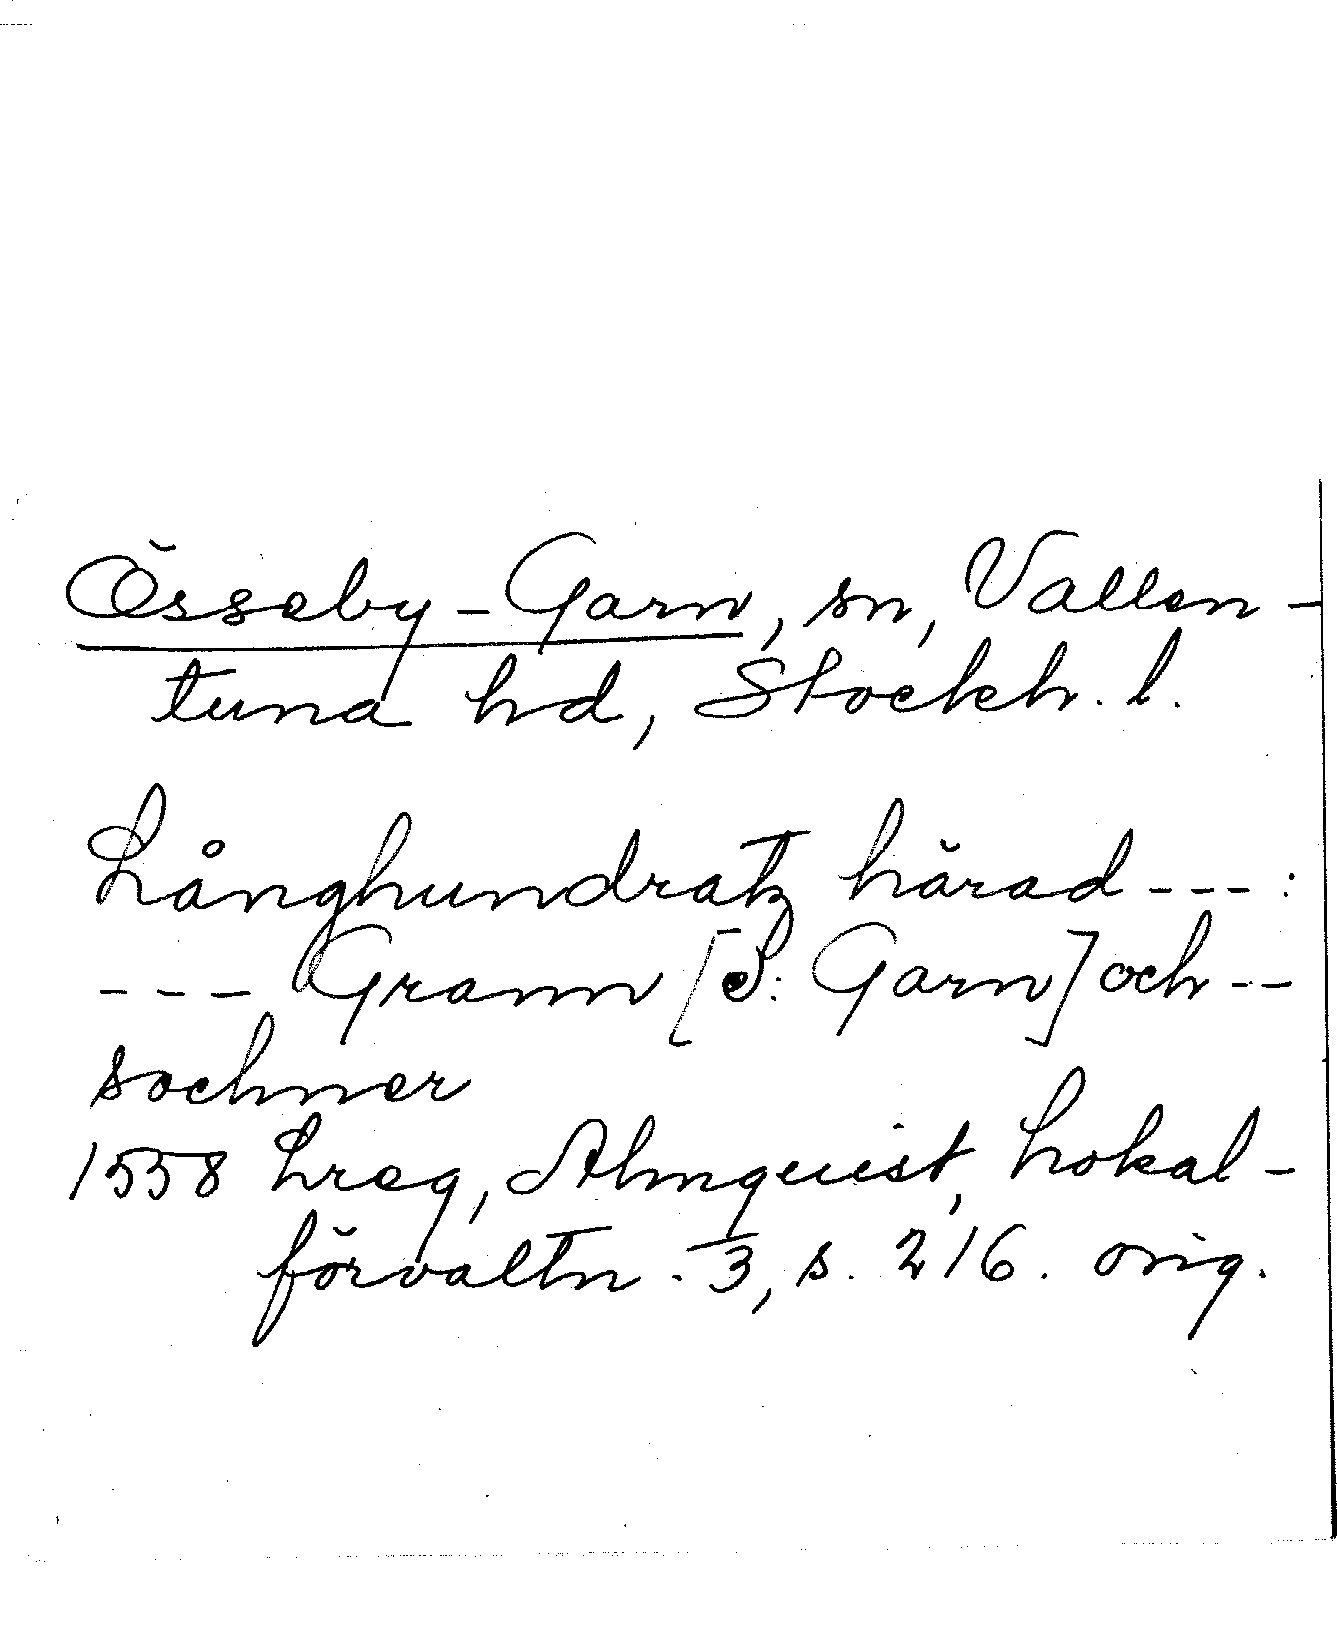 Össeby-Garn, sn, Vallen-
tuna hd, Stockh. l.
Långhundratz härad ---:
--- Grann [Ö: Garn] och --
sochner
1558 Lreg, Almquist, Lokal-
förvaltn. 3, s. 216. orig.